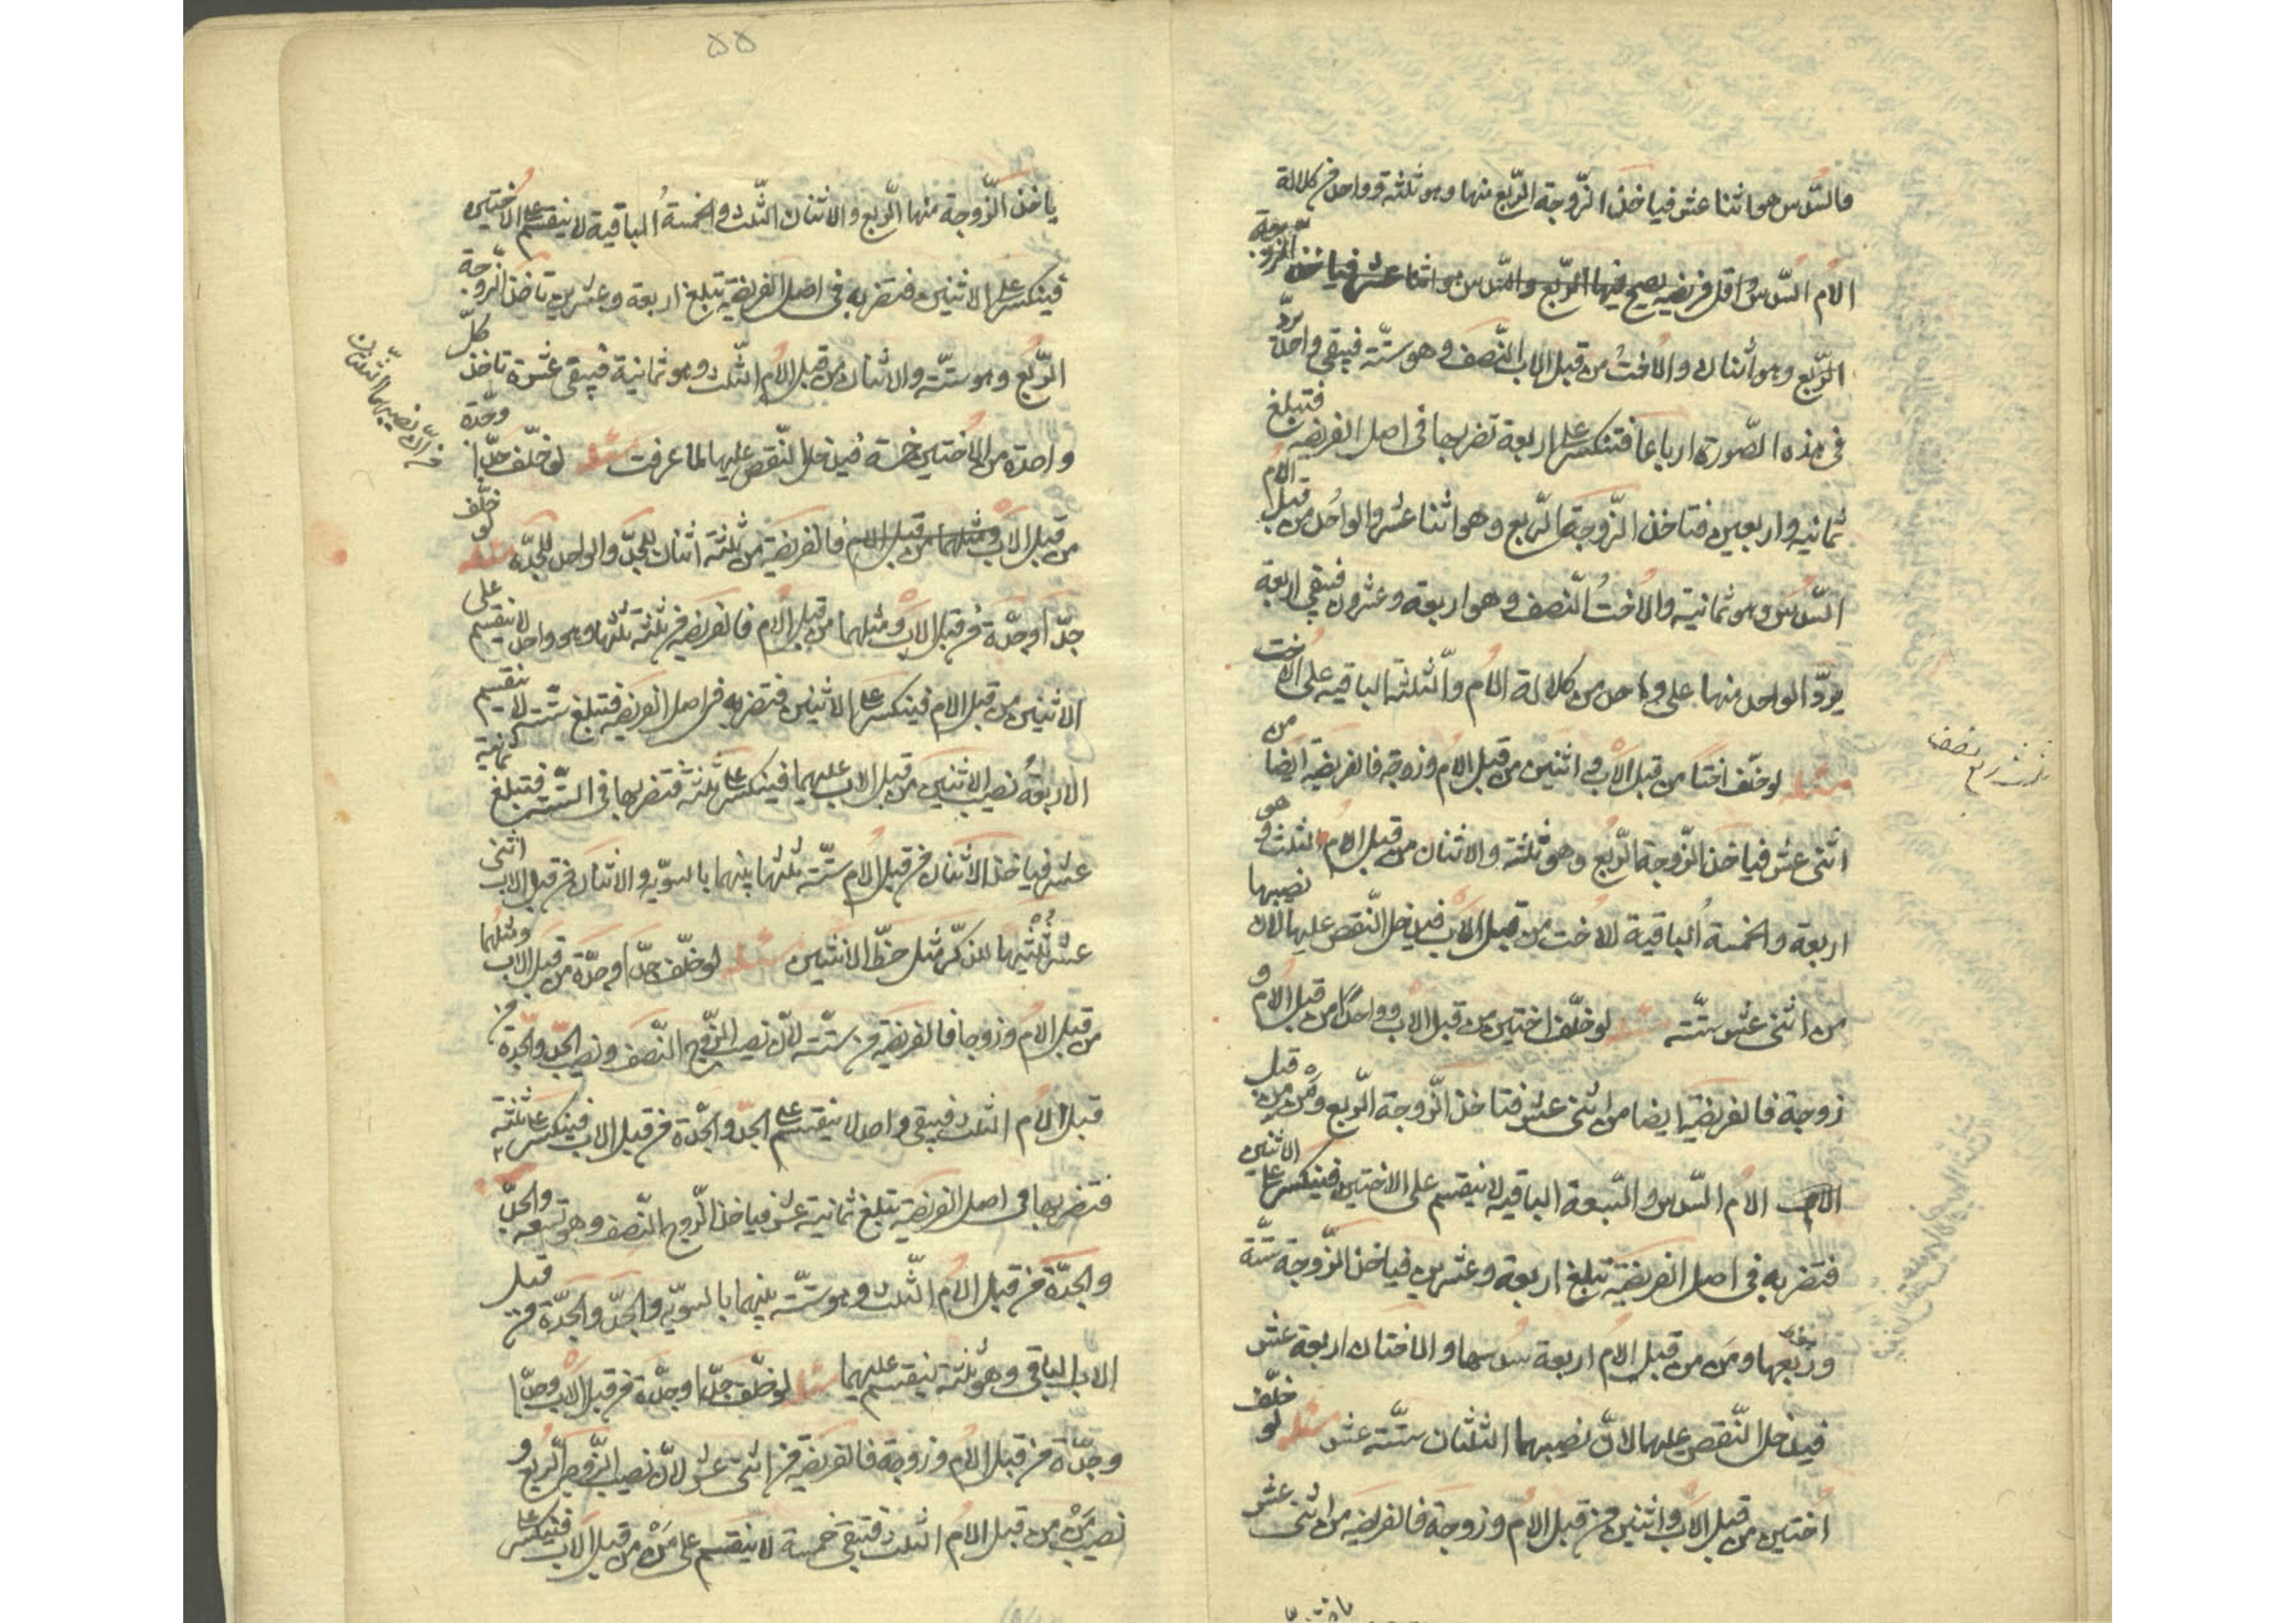 فالسّدس هو اثنا عشر فيأخذ الزّوجة الرّبع منها وهو ثلثة وواحد من كلالة
الام السّدس واقل فريضة يصح فيها الرّبع والسّدس هو اثنا عشر فيأخذ الزوجة
الرّبع وهو اثنان والاخت من قبل الاب النّصف وهو ستّة فيبقى واحدة يردّ
فى هذه الصّورة ارباعا فتنكسر على اربعة تضربها فى اصل الفريضة فتبلغ
ثمانية واربعين فتأخذ الزّوجة الرّبع وهو اثنا عشر والواحد من قبل الام
السّدس وهو ثمانية والاخت النّصف وهو اربعة وعشرون فيبقى اربعة
يردّ الواحد منها على واحد من كلالة الام والثّلثة الباقيه على الاخت
مسئلة لو خلّف اختا من قبل الاب و اثنين من قبل الام وزوجة فالفريضة ايضا من
اثنى عشر فيأخذ الزّوجة الرّبع وهو ثلثة والاثنان من قبل الام الثلث وهو
اربعة والخمسة الباقية للاخت من قبل الاب فيدخل النّقص عليها لان نصيبها
من اثنى عشر ستّة مسئلة لو خلّف اختين من قبل الاب وواحدا من قبل الام و
زوجة فالفريضة ايضا من اثنى عشر فتأخذ الزّوجة الرّبع ومن من قبل
الام السّدس والسّبعة الباقيه لا ينقسم على الاختين فينكسر على الاثنين
فتضربه فى اصل الفريضة تبلغ اربعة وعشرين فيأخذ الزّوجة ستّة
وربعها ومن من قبل الام اربعة سدسها والاختان اربعة عشر
فيدخل النّقص عليهما لانّ نصيبهما الثلثان ستّة عشر مسئلة لو خلّف
اختين من قبل الاب واثنين من قبل الام وزوجة فالفريضة من اثنى عشر
٥٥
ياخذ الزّوجة منها الرّبع والاثنان الثّلث والخمسة الباقية لا ينقسم على الاختين
فينكسر على الاثنين فتضربه فى اصل الفريضة تبلغ اربعة وعشرين تأخذ الزّوجة
الرّبع وهو ستّة والاثنان من قبل الام الثّلث وهو ثمانية فيبقى عشرة تأخذ كلّ
واحدة من الاختين خمسة فيدخل النّقص عليها لما عرفت مسئلة لو خلّف جدّا وجدّة
من قبل الاب ومثلهما من قبل الام فالفريضة من ثلثة اثنان للجدّ والواحد للجدّة مسئلة لو خلّف
جدّا وجدّة من قبل الاب ومثلهما من قبل الام فالفريضة من ثلثة ثلثها وهو واحد لا ينقسم على
الاثنين من قبل الام فينكسر على الاثنين فتضربه فى اصل الفريضة فتبلغ ستّة لا ينقسم
الاربعة نصيب الاثنين من قبل الاب عليهما فينكسر على ثلثة فتضربها فى الستّة فتبلغ ثمانية
عشر فيأخذ الاثنان من قبل الام ستّة ثلثها بينهما بالسويّه والاثنان من قبل الاب اثنى
عشر ثلثيها للذكر مثل حظّ الانثيين مسئلة لو خلّف جدّا وجدّة من قبل الاب ومثلهما
من قبل الام وزوجا فالفريضة من ستّة لانّ نصيب الزّوج النّصف ونصيب الجدّ والجدّة من
قبل الام الثلث فيبقى واحد لا ينقسم على الجدّ والجدّة من قبل الاب فينكسر على ثلثة
فتضربها فى اصل الفريضة تبلغ ثمانية عشر فيأخذ الزّوج النّصف وهو تسعة والجدّ
والجدّة من قبل الام الثّلث وهو ستّة بينهما بالسويّه والجدّ والجدّة من قبل
الاب الباقى وهو ثلثة ينقسم عليهما مسئلة لو خلّف جدّا وجدّة من قبل الاب وجدّا
وجدّة من قبل الام وزوجة فالفريضة من اثنى عشر لانّ نصيب الزّوجة الرّبع و
نصيب من من قبل الام الثلث فتبقى خمسة لا ينقسم على من من قبل الاب فينكسر على
لانّ نصيبهما الثلثان